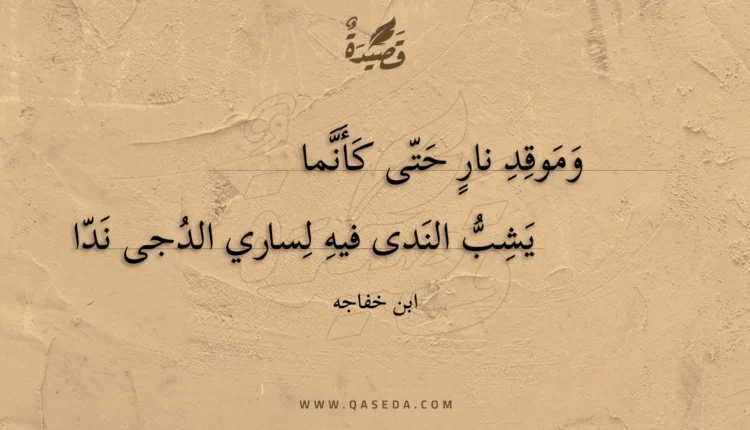 قَصِيدَةٌ
وَمَوقِدِ نارٍ حَتّى كَأَنَّما
يَشِبُّ النَدى فيهِ لِساري الدُجى نَدّا
ابن خفاجه
WWW.QASEDA.COM